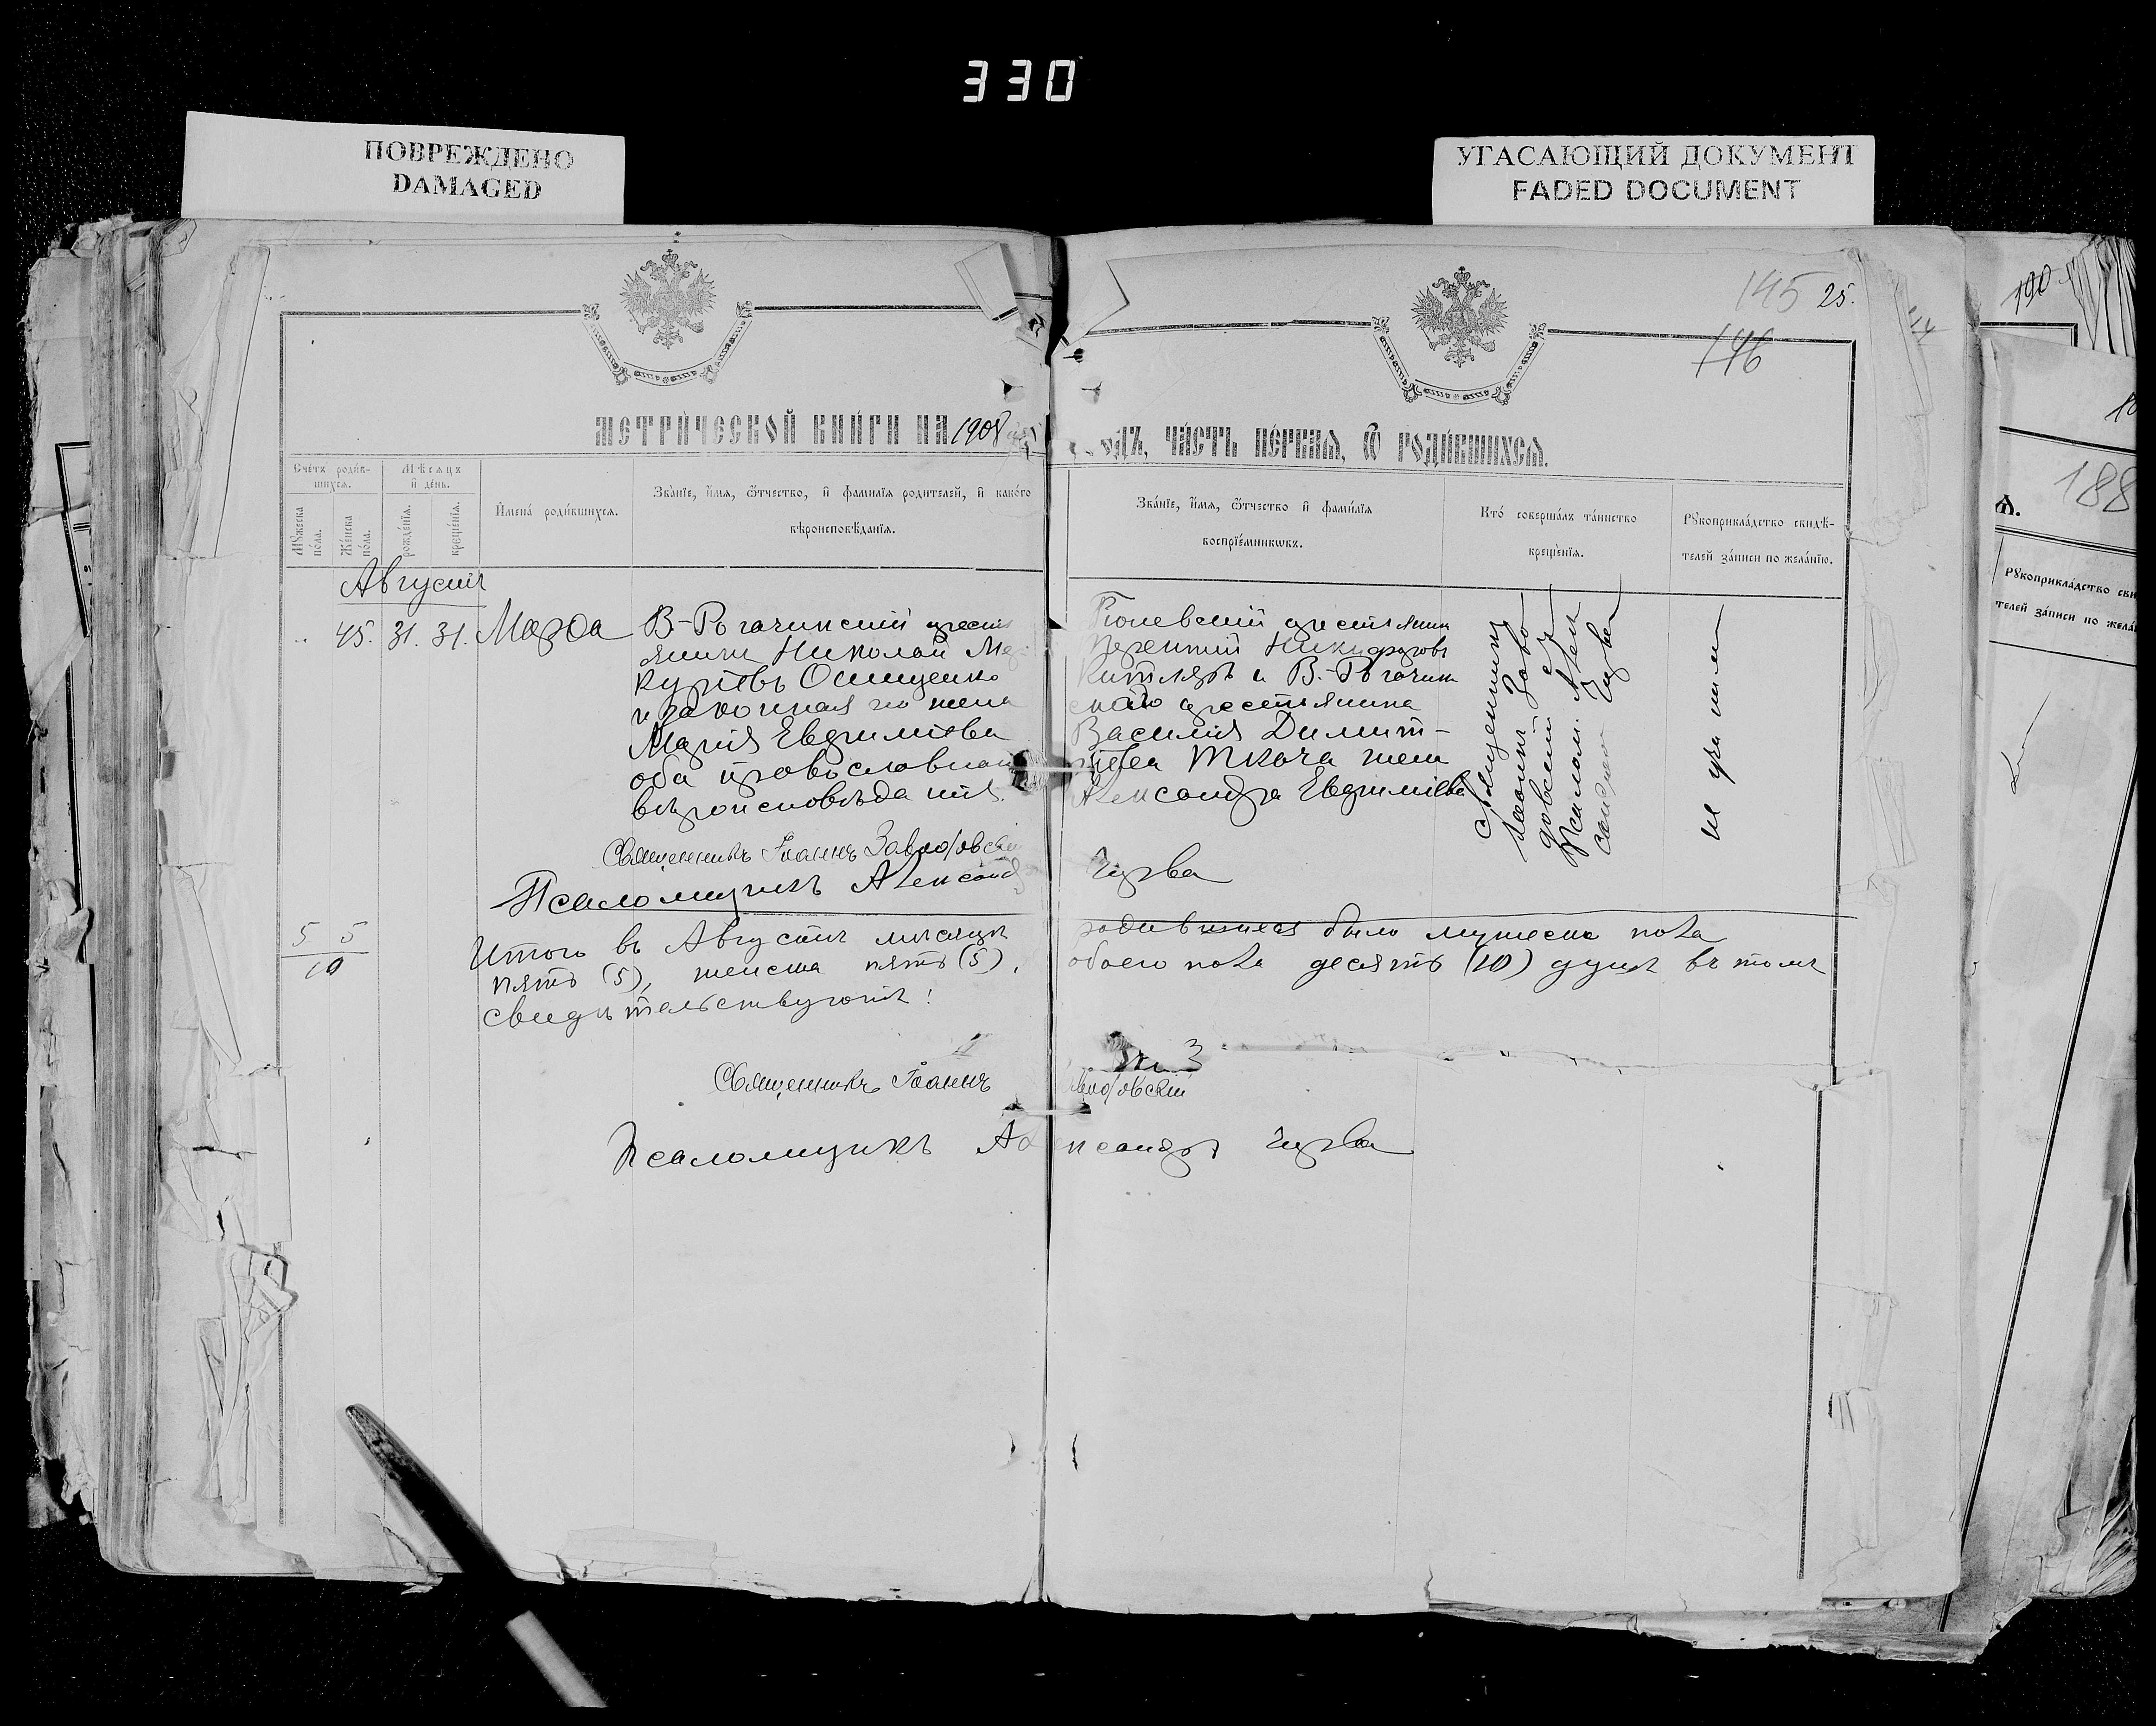 330
ПОВРЕЖДЕНО
DAMAGED
УГАСАЮЩИЙ ДОКУМЕНТ
FADED DOCUMENT
145 25.
146
190
188
МЕТРИ́ЧЕСКОЙ КНИ́ГИ НА 1908
ОДЪ, ЧА́СТЬ ПЕ́РВАЯ, Ѽ РОДИ́ВШИХСЯ.
Сче́тъ роди́в-
шихся.
Мѣсяцъ
и҆ де́нь.
Мꙋ́жеска
по́ла.
Же́нска
по́ла.
рожде́нїя.
креще́нїя.
И҆мена̀ роди́вшихся.
Зва́нїе, и҆́мя, ѻ҆́тчество, и҆ фамилїя родителей, и҆ како́го
вѣроисповѣ́данїя.
Зва́нїе, и҆́мя, ѻ҆́тчество и҆ фами́лїя
воспрїе́мниковъ.
Кто̀ соверша́лъ та́инство
креще́нїя.
Рꙋкоприкла́дство свидѣ́-
телей за́писи по жела́нїю.
Августъ
45. 31. 31. Марфа
В-Рогачинскій крест
янинъ Николай Ме
куріевъ Онищенко
и законная его жена
Марія Евфиміева
оба православнаго
вѣроисповѣданія.
крестьянин
Терентій Никифоровъ
Китляръ и В.-Рогачин
скаго крестьянина
Василія Димит-
ріева Ткача жена
Александра Евфиміева
Священникъ
Іоаннъ Заво
довскій съ
Псалом. Алек
сандром Чурва
Священникъ Іоаннъ Заводовскій
Псаломщикъ Александ Чурва
5 5
10
Итого въ Августѣ мѣсяцѣ родившихся было мужеска пола
пять (5), женска пять (5), обоего пола десять (10) душъ въ томъ
свидѣтельствуютъ:
Священникъ Іоаннъ Заводовскій
Псаломщикъ Александръ Чурва
Рꙋкоприкла́дство сви
телей за́писи по жела́